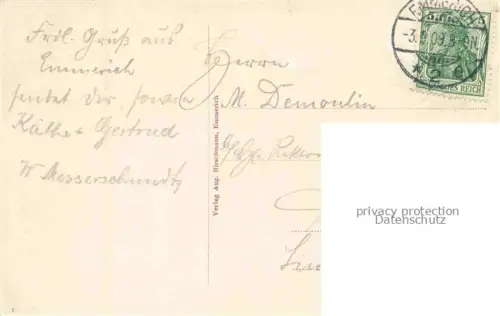 Frdl. Gruß aus
Emmerich
sendet dir, sowie
Käthe & Gertrud
W Messerschmidt
Verlag Aug. Hirschmann, Emmerich
Herrn
M. Demoulin
EMMERICH
-3.8.09.
DEUTSCHES REICH
privacy protection
Datenschutz